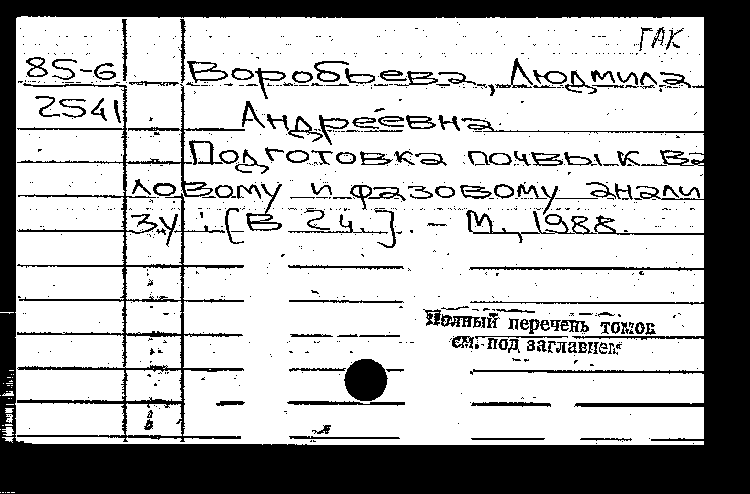 ГАК
85-6 Воробьева, Людмила
2541 Андреевна
Подготовка почвы к ва
ловому и фазовому анали
зу : [В 2 ч.]. - М., 1988.
Полный перечень томов
см. под заглавием